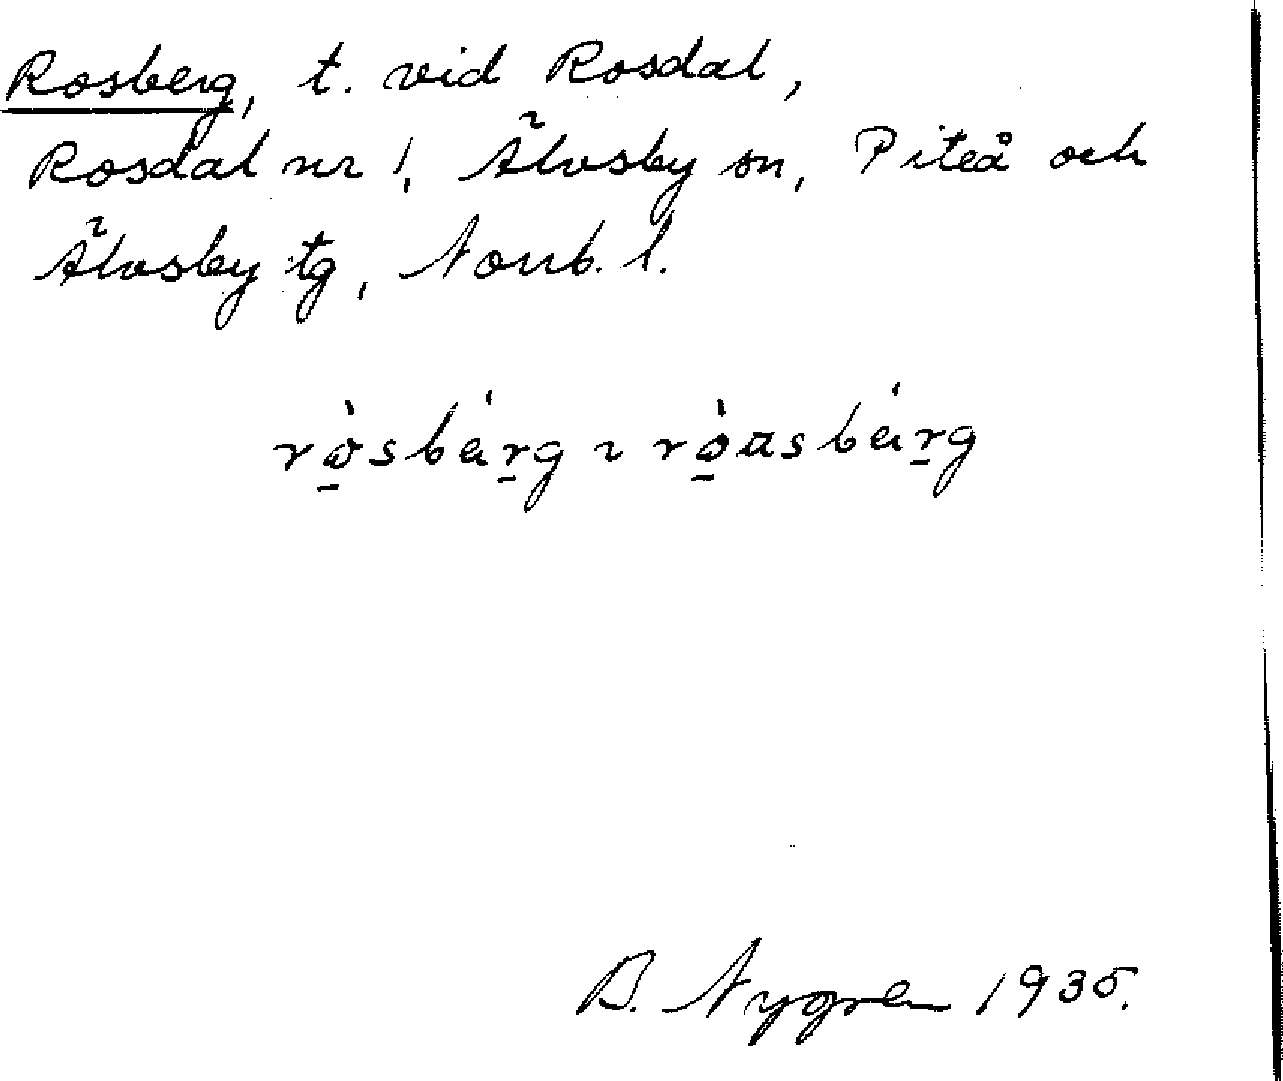 Rosberg, t. vid Rosdal,
Rosdal nr 1, Älvsby sn, Piteå och
Älvsby tg, Norrb. l.
B. Nygren 1935.